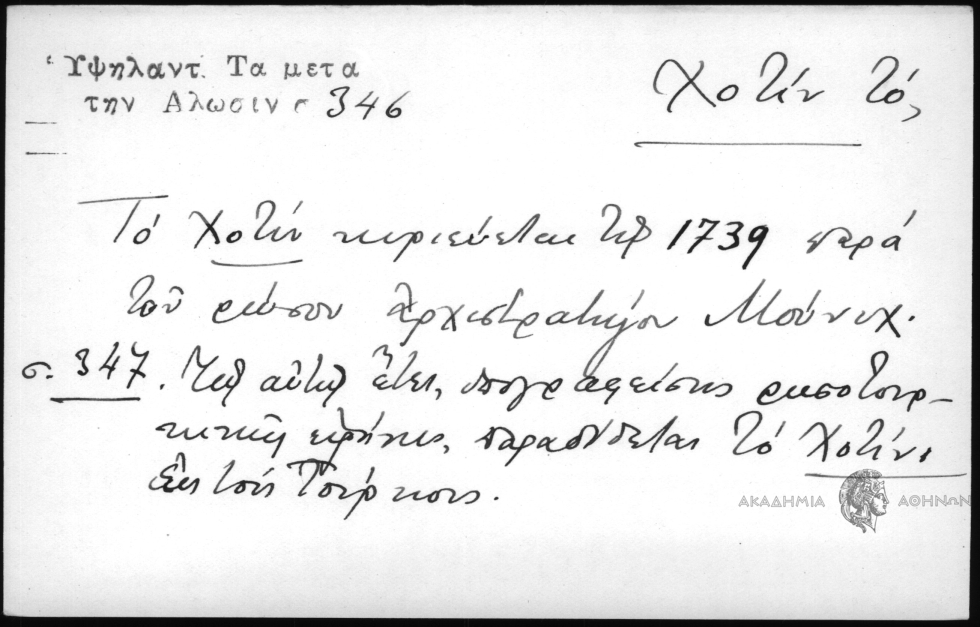 Ὑψηλαντ. Τα μετα
την Αλωσιν σ 346
Χοτίν τό,
Τό Χοτίν κυριεύεται τῷ 1739 παρά
τοῦ ρώσσου ἀρχιστρατήγου Μούνιχ.
σ. 347. Τῷ αὐτῷ ἔτει, ὑπογραφείσης ρωσοτουρ-
κικῆς εἰρήνης, παραδίδεται τό Χοτίν
εἰς τούς Τούρκους.
ΑΚΑΔΗΜΙΑ ΑΘΗΝΩΝ